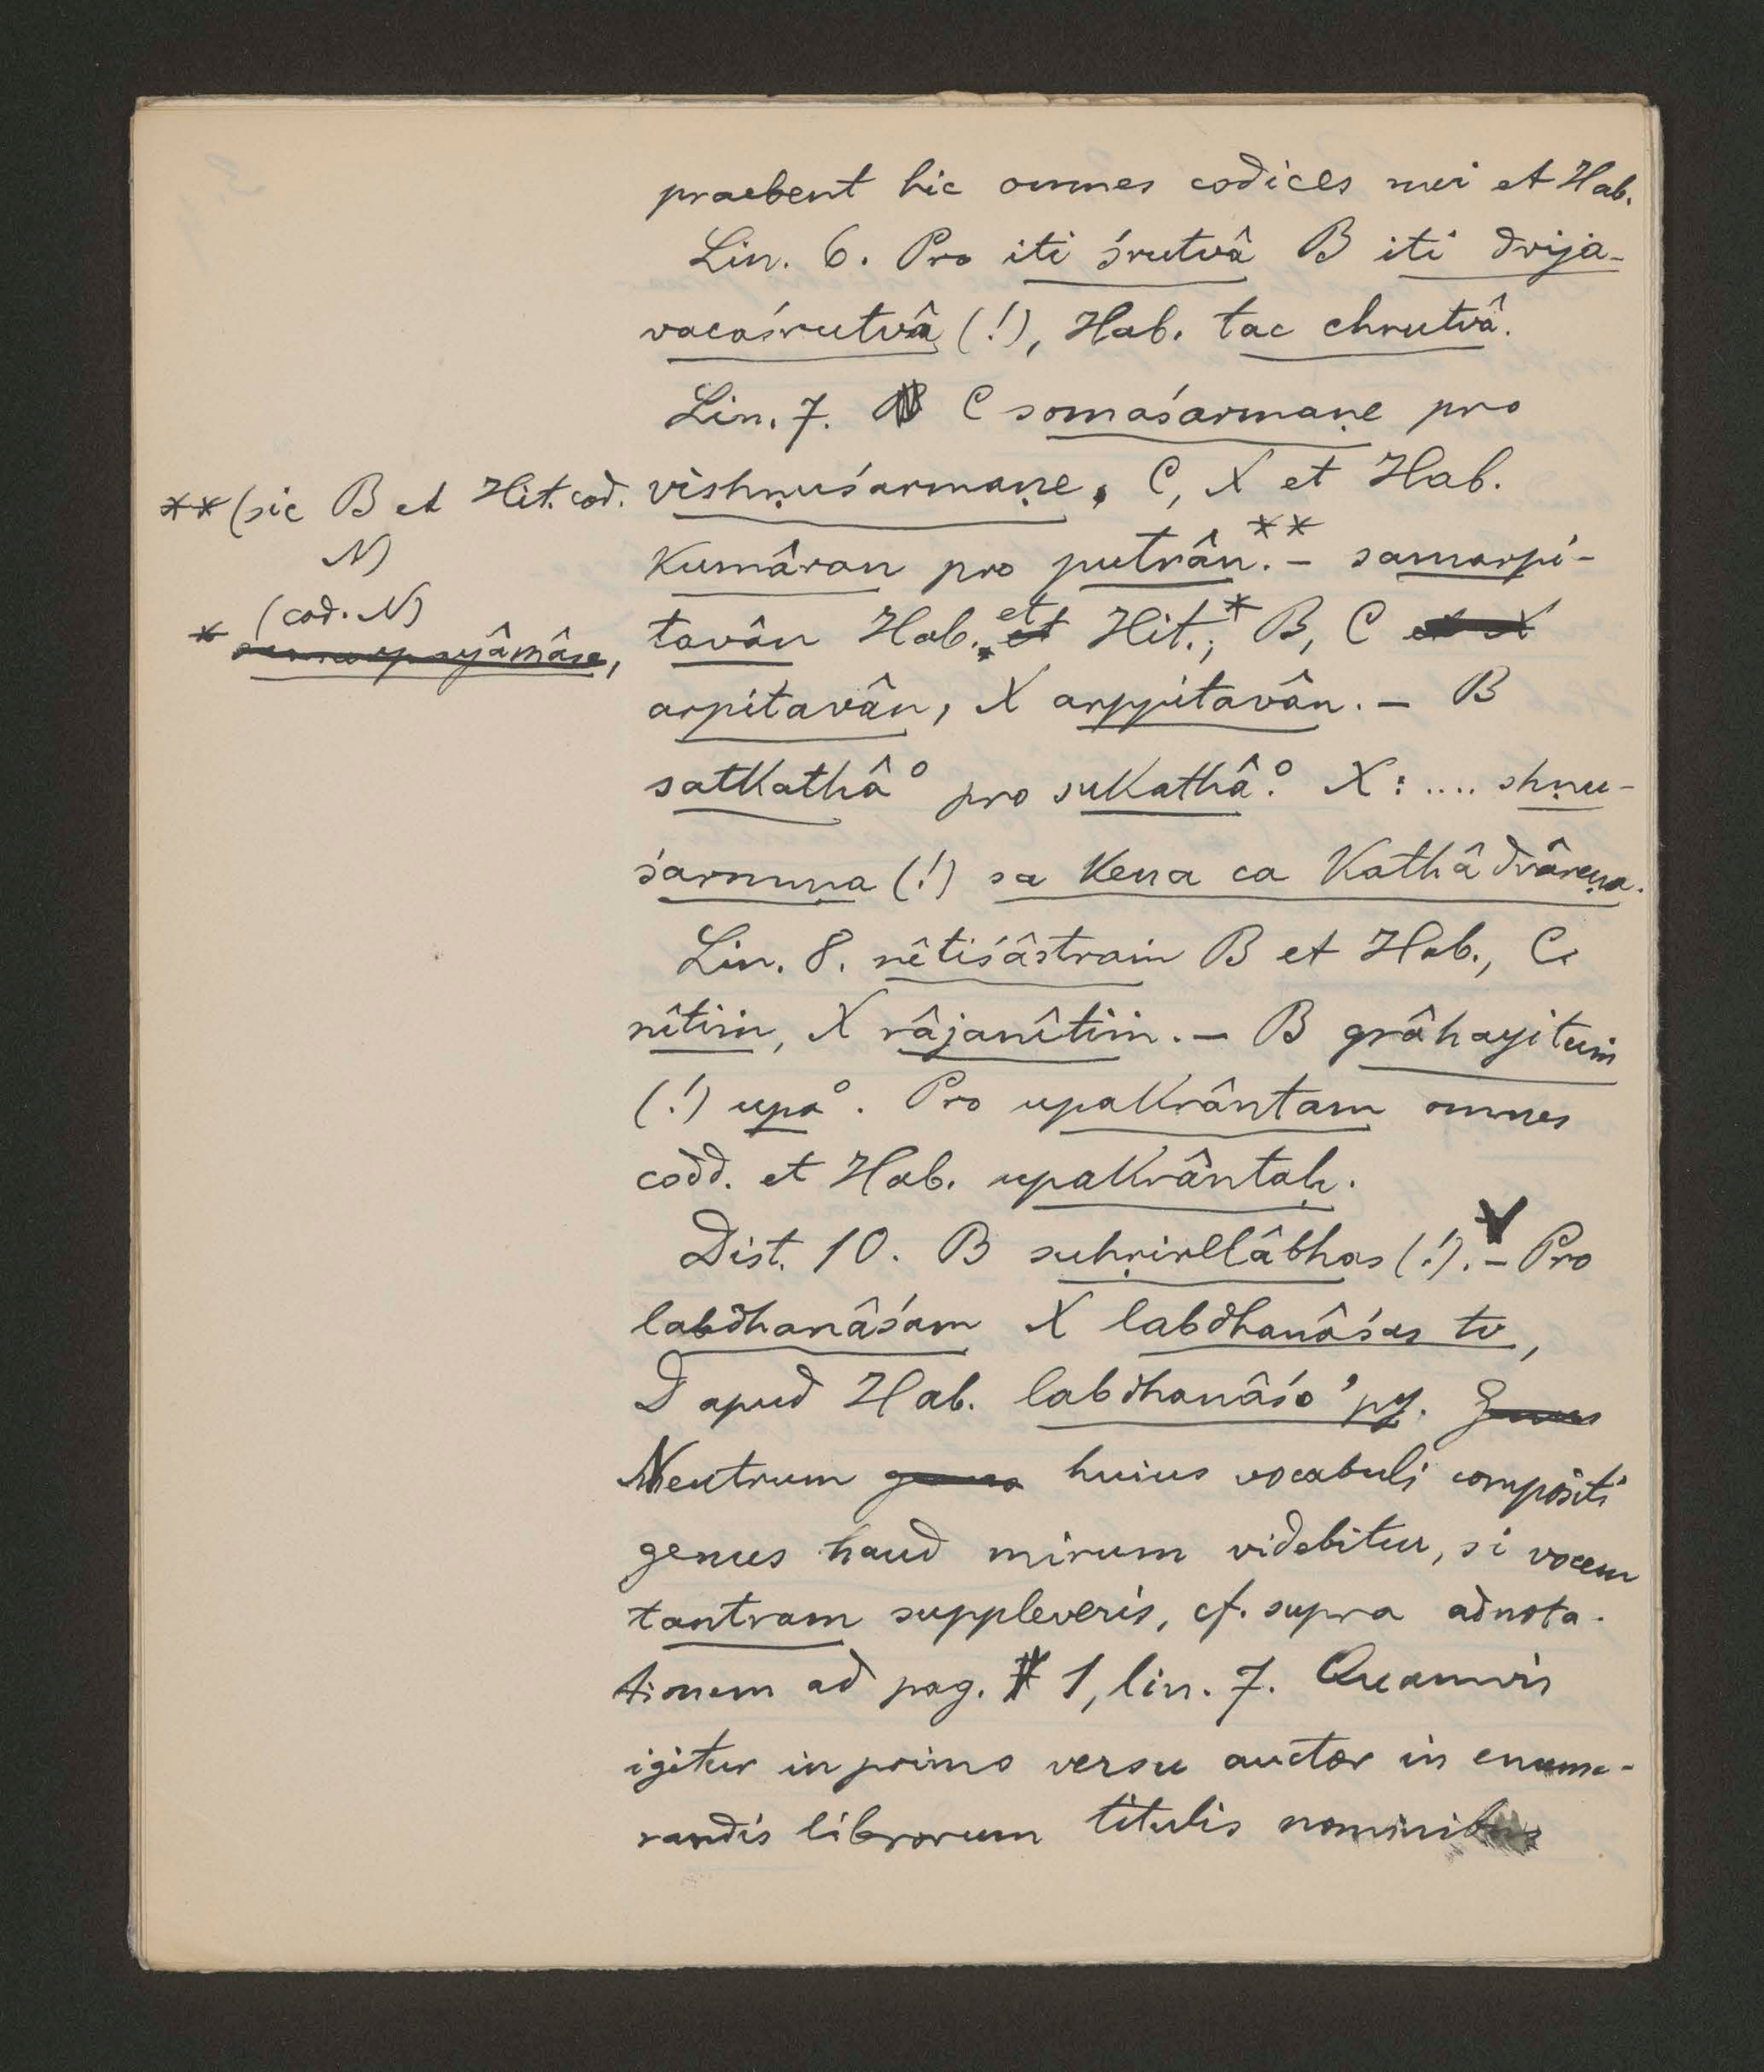 praebent hic omnes codices mei et Hab.
Lin. 6. Pro iti śrutvâ B iti dvija-
vacaśrutvâ (!), Hab. tac chrutvâ.
Lin. 7. C somaśarmaṇe pro
** (sic B et Hit. cod.
N)
vishṇuśarmaṇe. C, X et Hab.
kumâran pro putrân.** – samarpi-
* (cod. N)
samarpayâmâsa,
tavân Hab. et Hit.;* B, C et X
arpitavân, X arppitavân. – B
satkathâ° pro sukathâ°. X: .... shṇu-
śarmuṇa (!) sa kena ca kathâdvâreṇa.
Lin. 8. nêtiśâstraṁ B et Hab., C
nîtiṁ, X râjanîtiṁ. – B grâhayituṁ
(!) upa°. Pro upakrântam omnes
codd. et Hab. upakrântaḥ.
Dist. 10. B suhṛirllâbhas (!). – Pro
labdhanâśam X labdhanâśas tv,
D apud Hab. labdhanâśo 'py. Genus
Neutrum genus huius vocabuli compositi
genus haud mirum videbitur, si vocem
tantram suppleveris, cf. supra adnota-
tionem ad pag. 1, lin. 7. Quamvis
igitur in primo versu auctor in enume-
randis librorum titulis nominibus